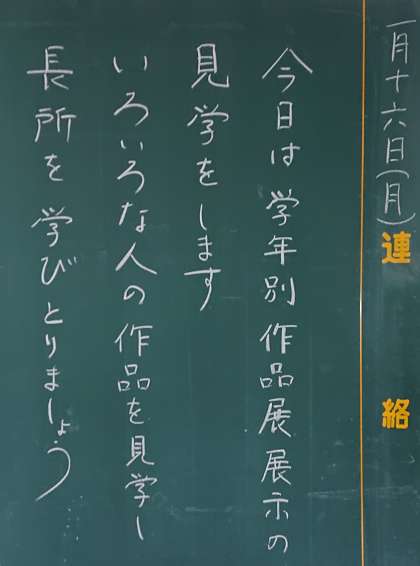 一月十六日(月)
連絡
今日は学年別作品展展示の
見学をします
いろいろな人の作品を見学し
長所を学びとりましょう